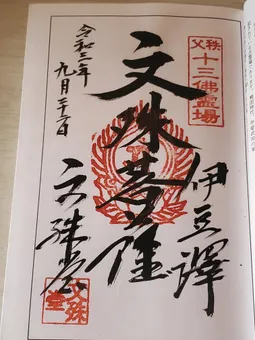 秩父
十三佛霊場
伊豆澤
文殊菩薩
令和三年
九月
文殊堂
文殊堂